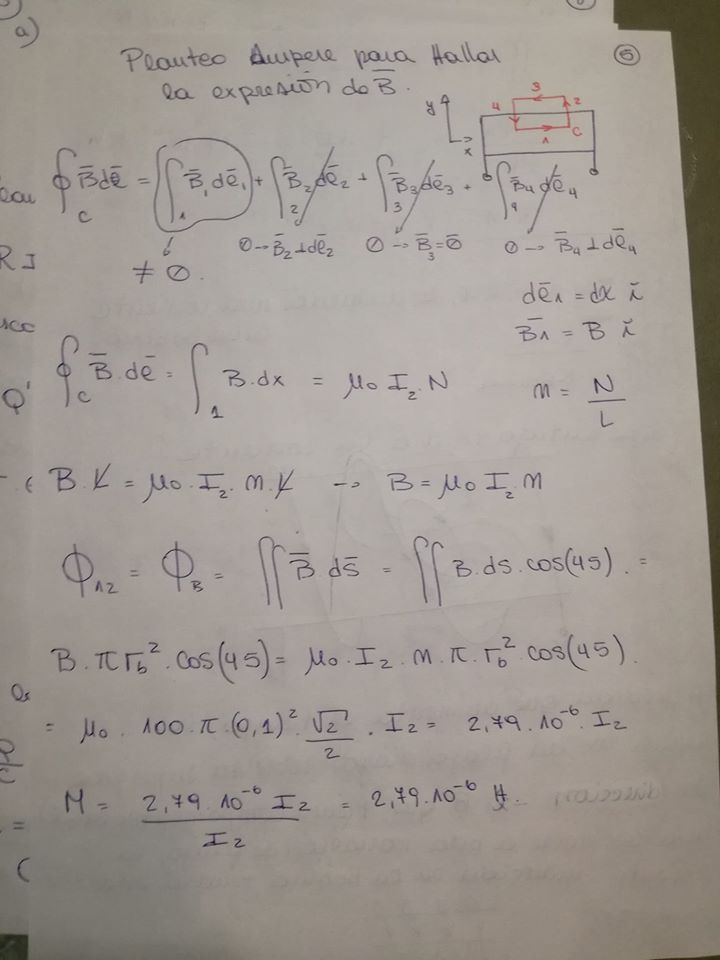 a)
Planteo Ampere para Hallar
la expresión de B̅.
5
3
4
2
y
x
1
C
∮_C B̅ dl̅ = ∫_1 B̅₁ dl̅₁ + ∫_2 B̅₂ dl̅₂ + ∫_3 B̅₃ dl̅₃ + ∫_4 B̅₄ dl̅₄
≠ 0.
0 → B̅₂ ⊥ dl̅₂
0 → B̅₃ = 0̅
0 → B̅₄ ⊥ dl̅₄
RI
dl̅₁ = dx ĭ
B̅₁ = B ĭ
Q'
∮_C B̅ . dl̅ = ∫_1 B . dx = μ₀ I₂ . N
m = N/L
B . L = μ₀ . I₂ . m . L → B = μ₀ I₂ m
Φ₁₂ = Φ_B = ∬ B̅ . ds̅ = ∬ B . ds . cos(45) . =
B . π r_b² . cos(45) = μ₀ . I₂ . m . π . r_b² . cos(45) .
= μ₀ . 100 . π . (0,1)² . √2/2 . I₂ = 2,79 . 10⁻⁶ . I₂
M = 2,79 . 10⁻⁶ I₂ / I₂ = 2,79 . 10⁻⁶ H.